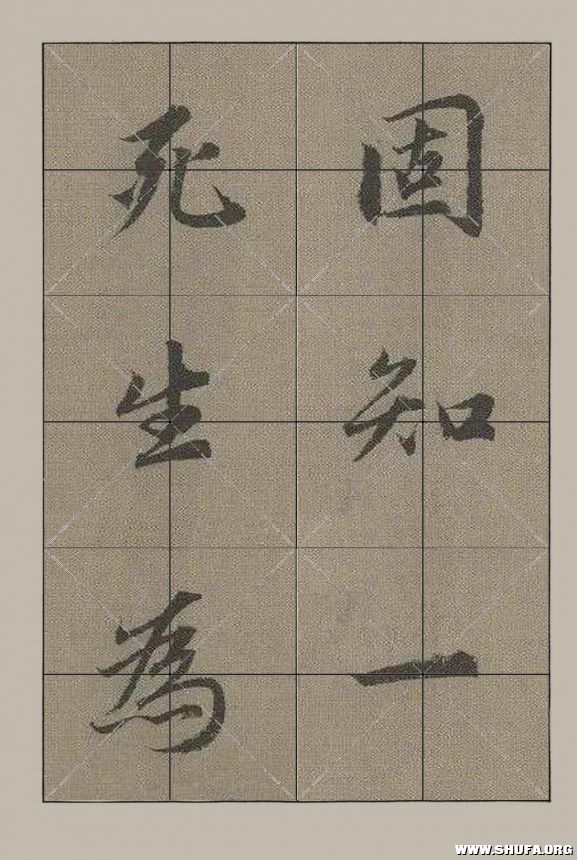 固知一
死生為
WWW.SHUFA.ORG